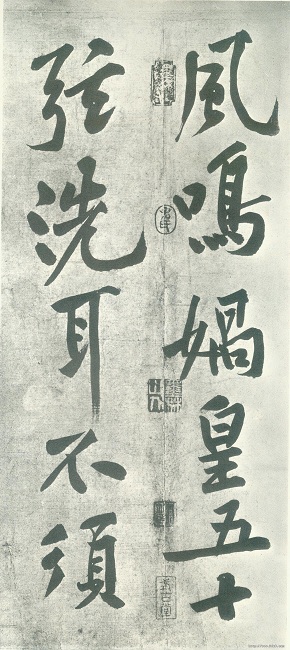 風鳴媧皇五十
弦洗耳不須